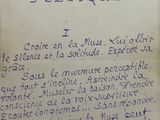 POÉTIQUE
I
Croire en la Muse. Lui offrir
le silence et la solitude. Espérer sa
grâce.
Sous le murmure perceptible,
que tout s'incline. Astreindre la
volonté. Museler la raison. Prendre
conscience de la voix supérieure.
Écouter longtemps... Sans répondre.
la Muse peut